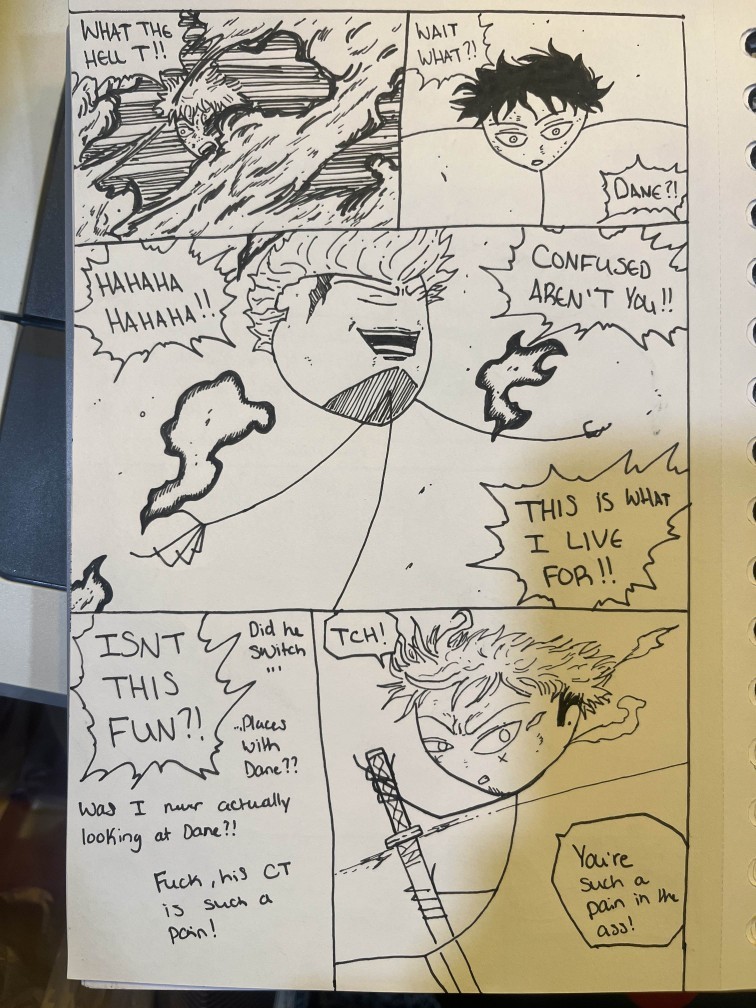 WHAT THE
HELL T!!
WAIT
WHAT?!
DANE?!
HAHAHA
HAHAHA!!
CONFUSED
AREN'T YOU!!
THIS IS WHAT
I LIVE
FOR!!
ISNT
THIS
FUN?!
Did he
switch
...
...Places
with
Dane??
Was I never actually
looking at Dane?!
Fuck, his CT
is such a
pain!
TCH!
You're
such a
pain in the
ass!